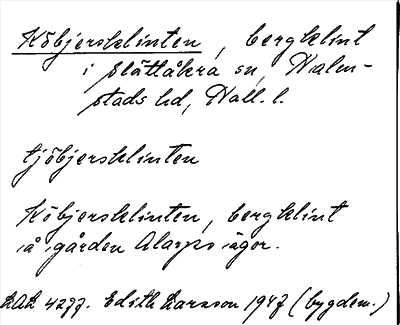 Köbjersklinten, bergklint
i Slättåkra sn, Halm-
stads hd, Hall. l.
tjöbjersklinten
Köbjersklinten, bergklint
å gården Alarps ägor.
LAL 4277. Edith Larsson 1947 (bygdem.)